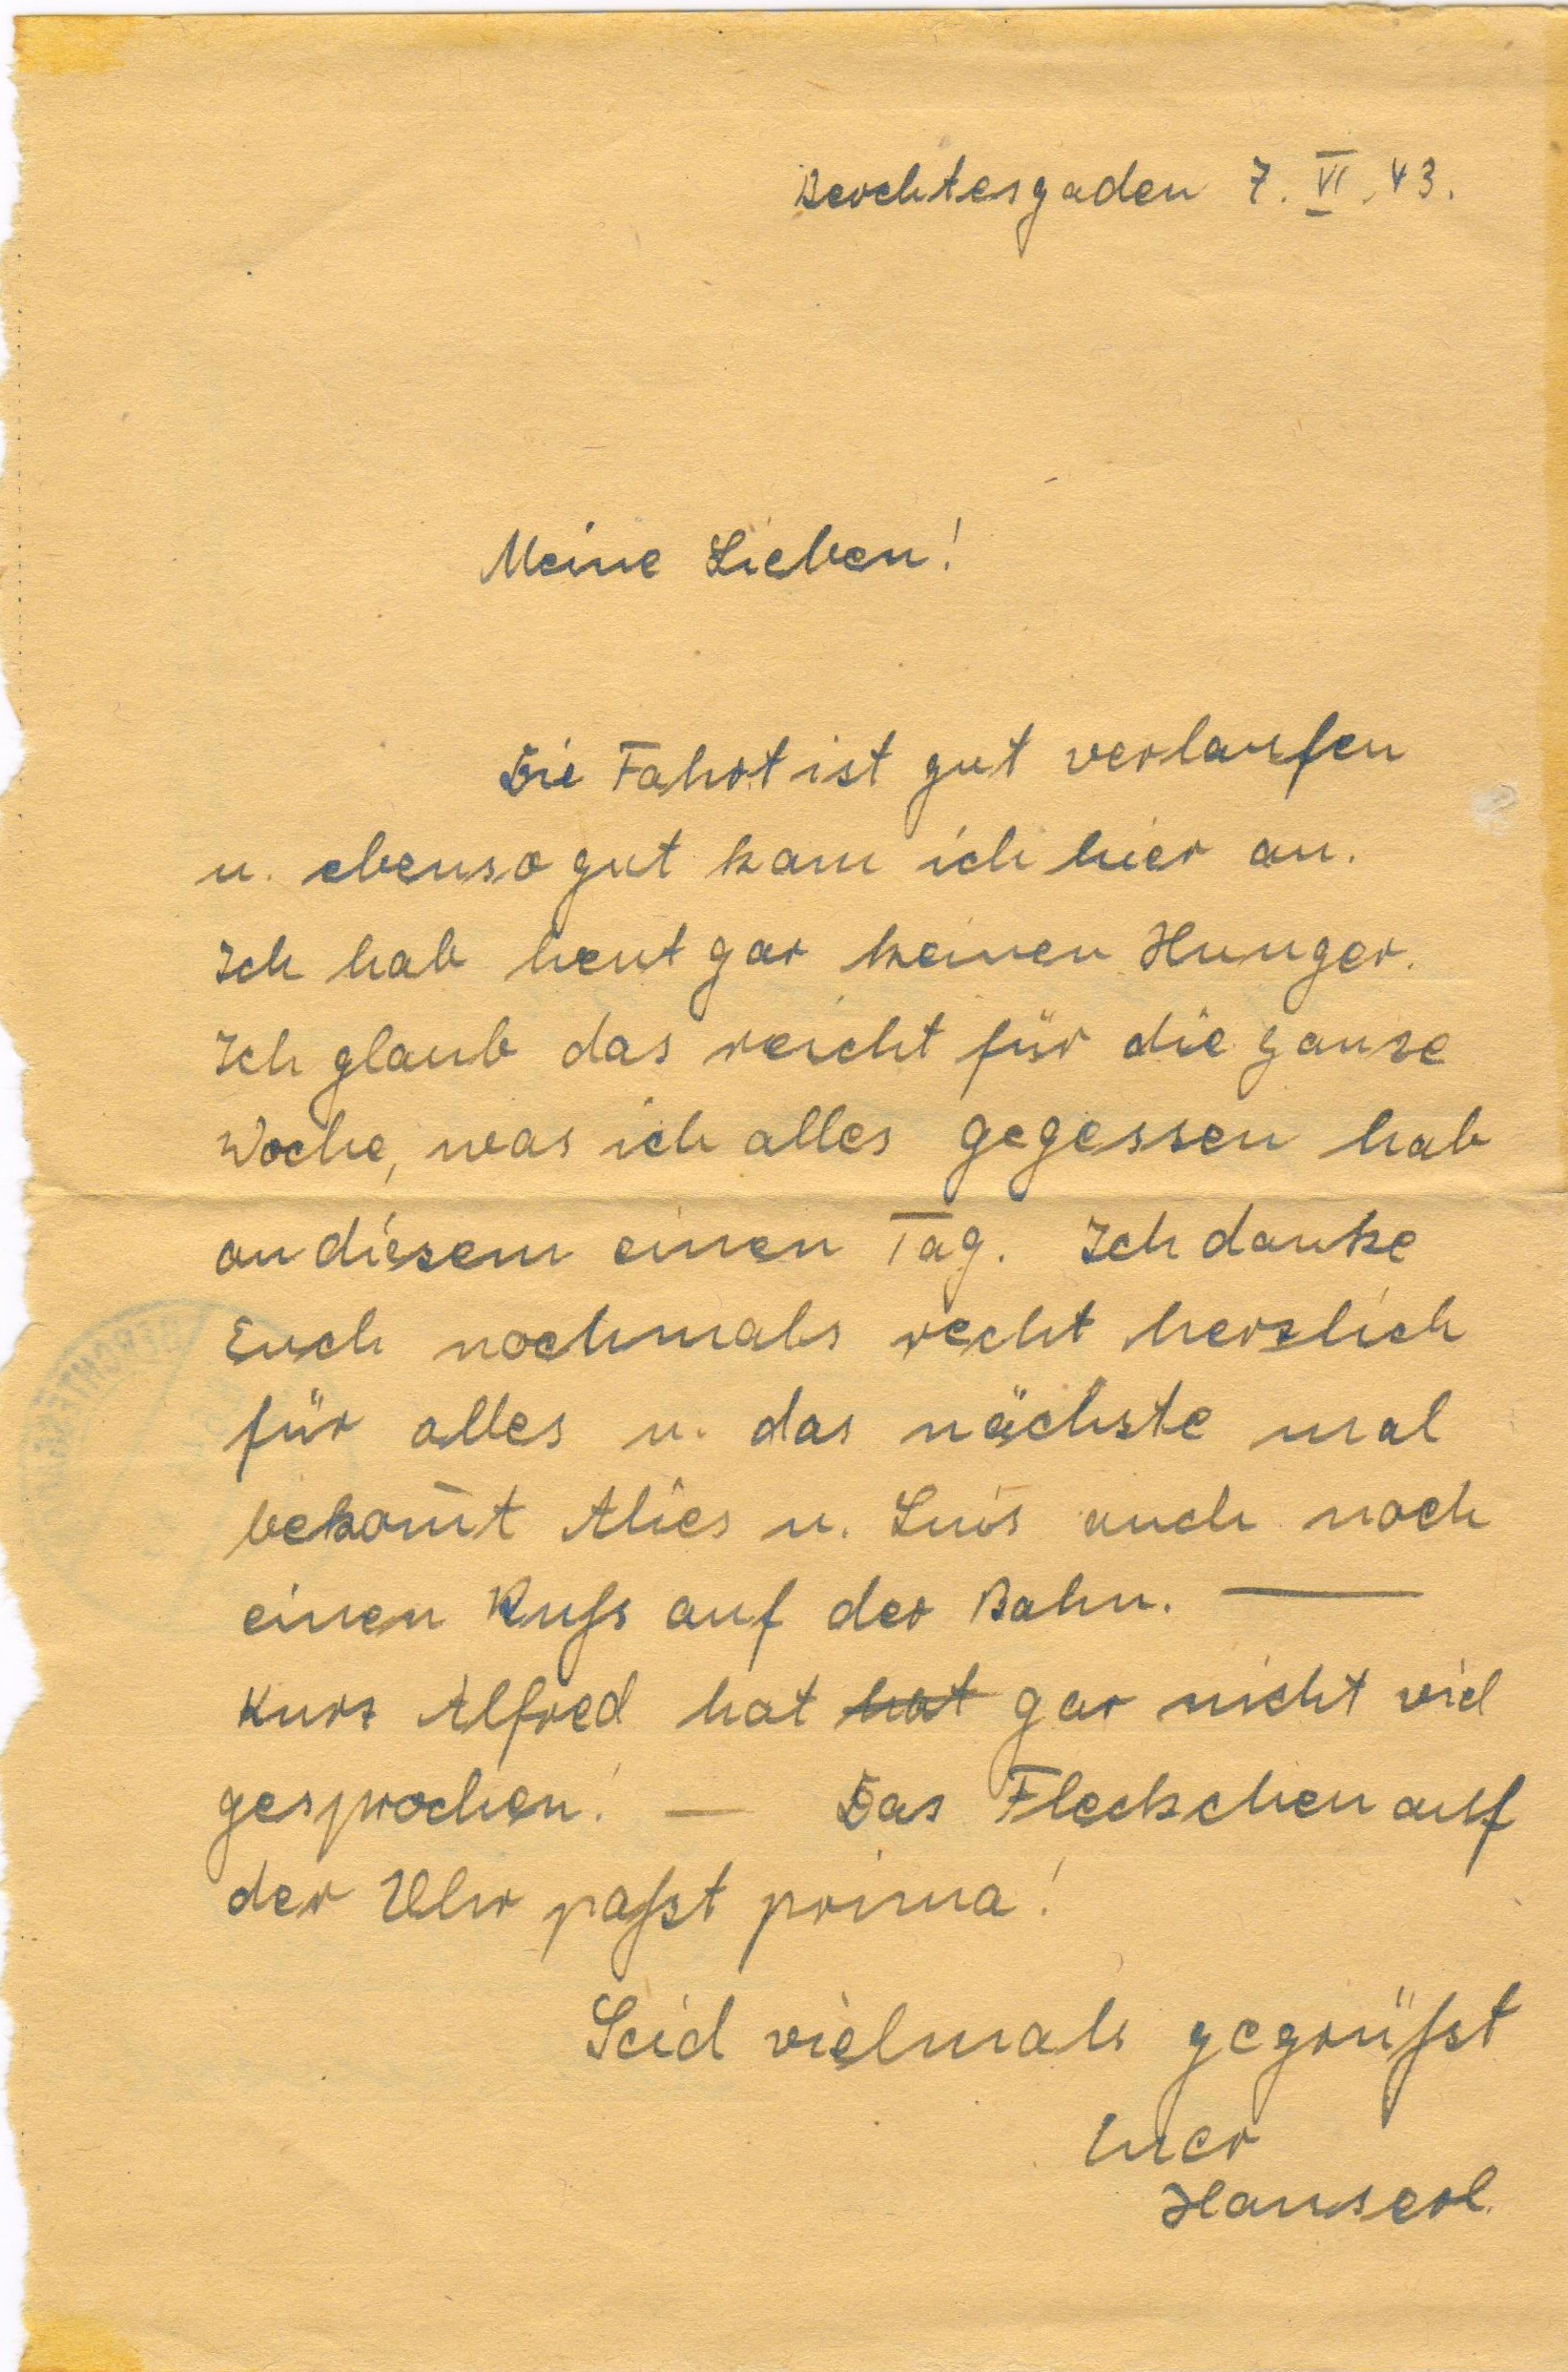 Berchtesgaden 7. VI. 43.
Meine Lieben!
Die Fahrt ist gut verlaufen
u. ebenso gut kam ich hier an.
Ich hab heut gar keinen Hunger.
Ich glaub das reicht für die ganze
Woche, was ich alles gegessen hab
an diesem einen Tag. Ich danke
Euch nochmals recht herzlich
für alles u. das nächste mal
bekom̄t Alies u. Luis auch noch
einen Kuss auf der Bahn. —
Kurz Alfred hat hat gar nicht viel
gesprochen! — Das Fleckchen auf
der Uhr passt prima!
Seid vielmals gegrüsst
Euer
Hanserl.